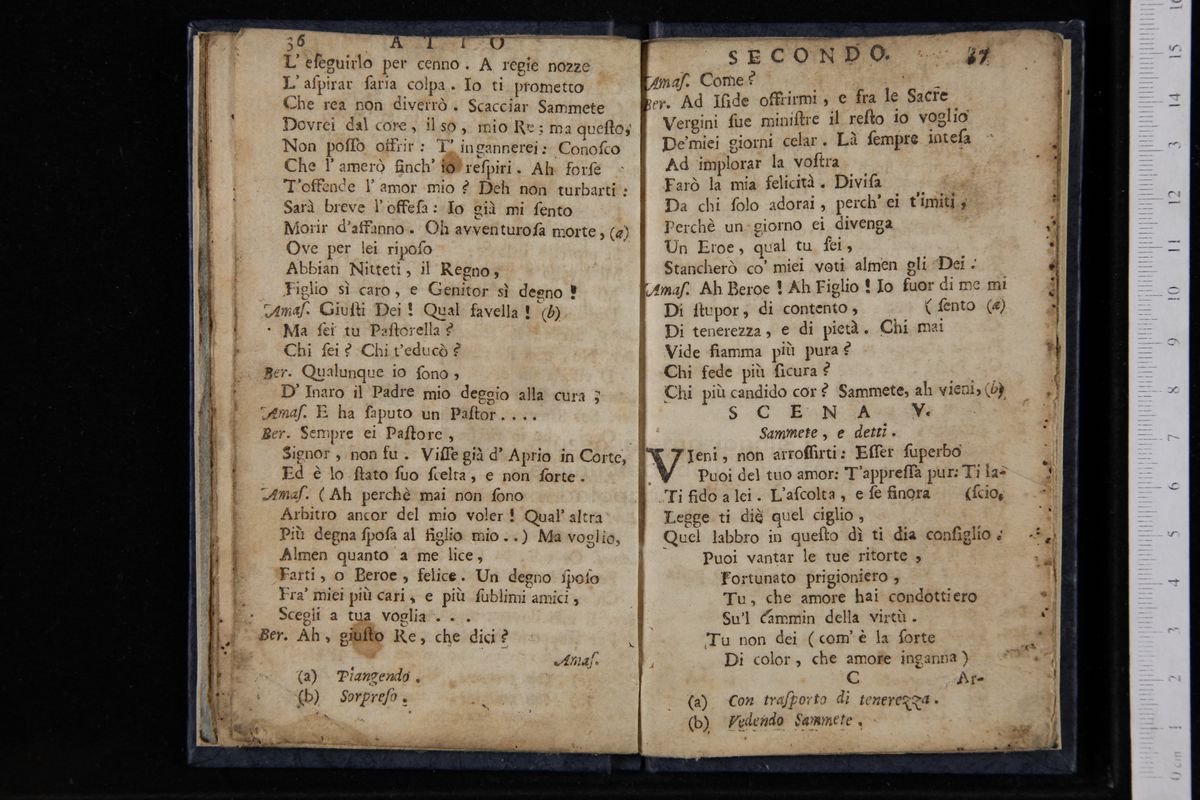 36 ATTO
L' eſeguirlo per cenno. A regie nozze
L' aſpirar faria colpa. Io ti prometto
Che rea non diverrò. Scacciar Sammete
Dovrei dal core, il so, mio Re; ma queſto,
Non poſſo offrir: T' ingannerei: Conoſco
Che l' amerò finch' io reſpiri. Ah forſe
T'offende l' amor mio? Deh non turbarti:
Sarà breve l'offeſa: Io già mi ſento
Morir d'affanno. Oh avventuroſa morte, (a)
Ove per lei ripoſo
Abbian Nitteti, il Regno,
Figlio sì caro, e Genitor sì degno!
Amaſ. Giuſti Dei! Qual favella! (b)
Ma ſei tu Paſtorella?
Chi ſei? Chi t'educò?
Ber. Qualunque io ſono,
D' Inaro il Padre mio deggio alla cura;
Amaſ. E ha ſaputo un Paſtor....
Ber. Sempre ei Paſtore,
Signor, non fu. Viſſe già d' Aprio in Corte,
Ed è lo ſtato ſuo ſcelta, e non ſorte.
Amaſ. (Ah perchè mai non ſono
Arbitro ancor del mio voler! Qual' altra
Più degna ſpoſa al figlio mio..) Ma voglio,
Almen quanto a me lice,
Farti, o Beroe, felice. Un degno ſpoſo
Fra' miei più cari, e più ſublimi amici,
Scegli a tua voglia...
Ber. Ah, giuſto Re, che dici?
Amaſ.
(a) Piangendo.
(b) Sorpreſo.
SECONDO. 37
Amaſ. Come?
Ber. Ad Iſide offrirmi, e fra le Sacre
Vergini ſue miniſtre il reſto io voglio
De'miei giorni celar. Là ſempre inteſa
Ad implorar la voſtra
Farò la mia felicità. Diviſa
Da chi ſolo adorai, perch' ei t'imiti,
Perchè un giorno ei divenga
Un Eroe, qual tu ſei,
Stancherò co' miei voti almen gli Dei.
Amaſ. Ah Beroe! Ah Figlio! Io fuor di me mi
Di ſtupor, di contento, (ſento (a)
Di tenerezza, e di pietà. Chi mai
Vide fiamma più pura?
Chi fede più ſicura?
Chi più candido cor? Sammete, ah vieni, (b)
SCENA V.
Sammete, e detti.
VIeni, non arroſſirti: Eſſer ſuperbo
Puoi del tuo amor: T'appreſſa pur: Ti la-
Ti fido a lei. L'aſcolta, e ſe finora (ſcio,
Legge ti diè quel ciglio,
Quel labbro in queſto dì ti dia conſiglio.
Puoi vantar le tue ritorte,
Fortunato prigioniero,
Tu, che amore hai condottiero
Su'l cammin della virtù.
Tu non dei (com' è la ſorte
Di color, che amore inganna)
C Ar-
(a) Con traſporto di tenerezza.
(b) Vedendo Sammete.